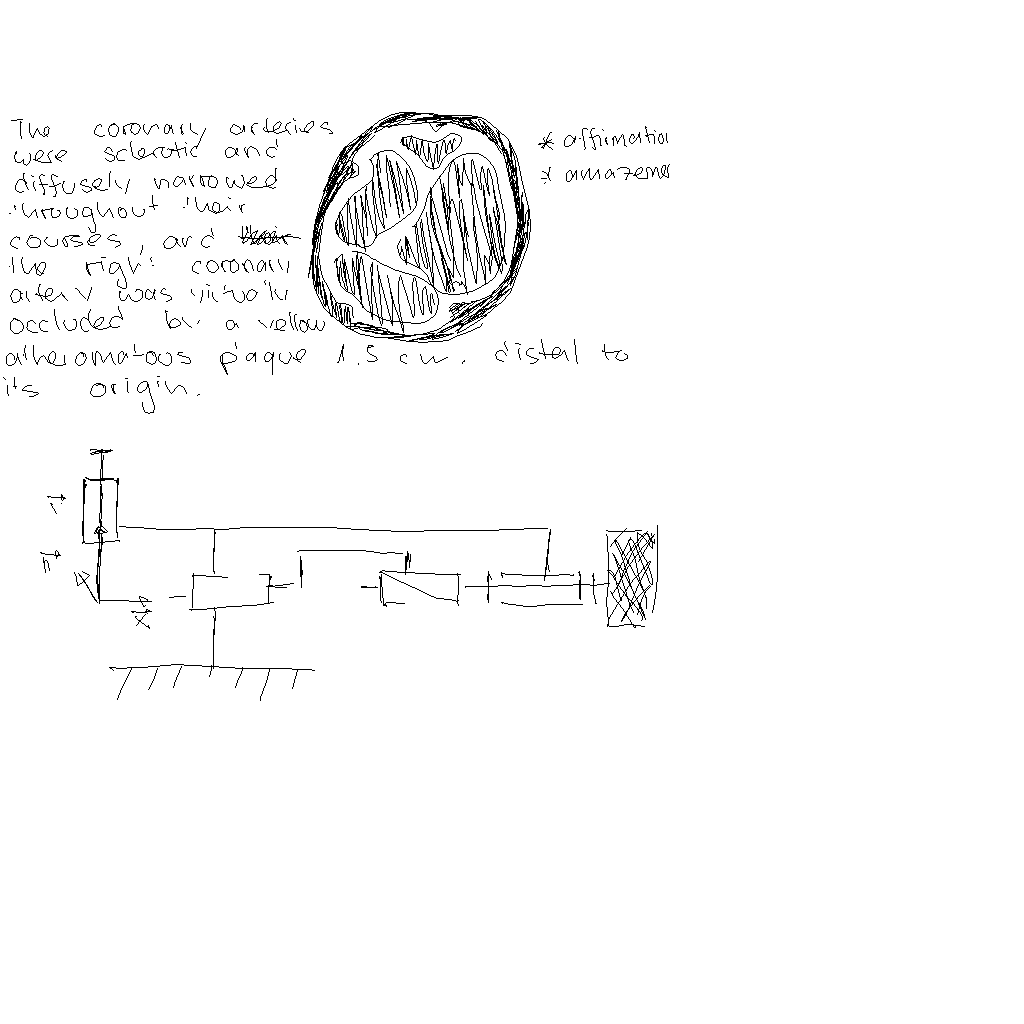 The coronary arteries
were sclerotic and
diffusely narrowed
throughout their
courses, and
the right coronary
artery was virtually
occluded by a yellow
atheromatous plaque 1.5 cm. distal to
its origin.
* affirmation
* amazemen
x